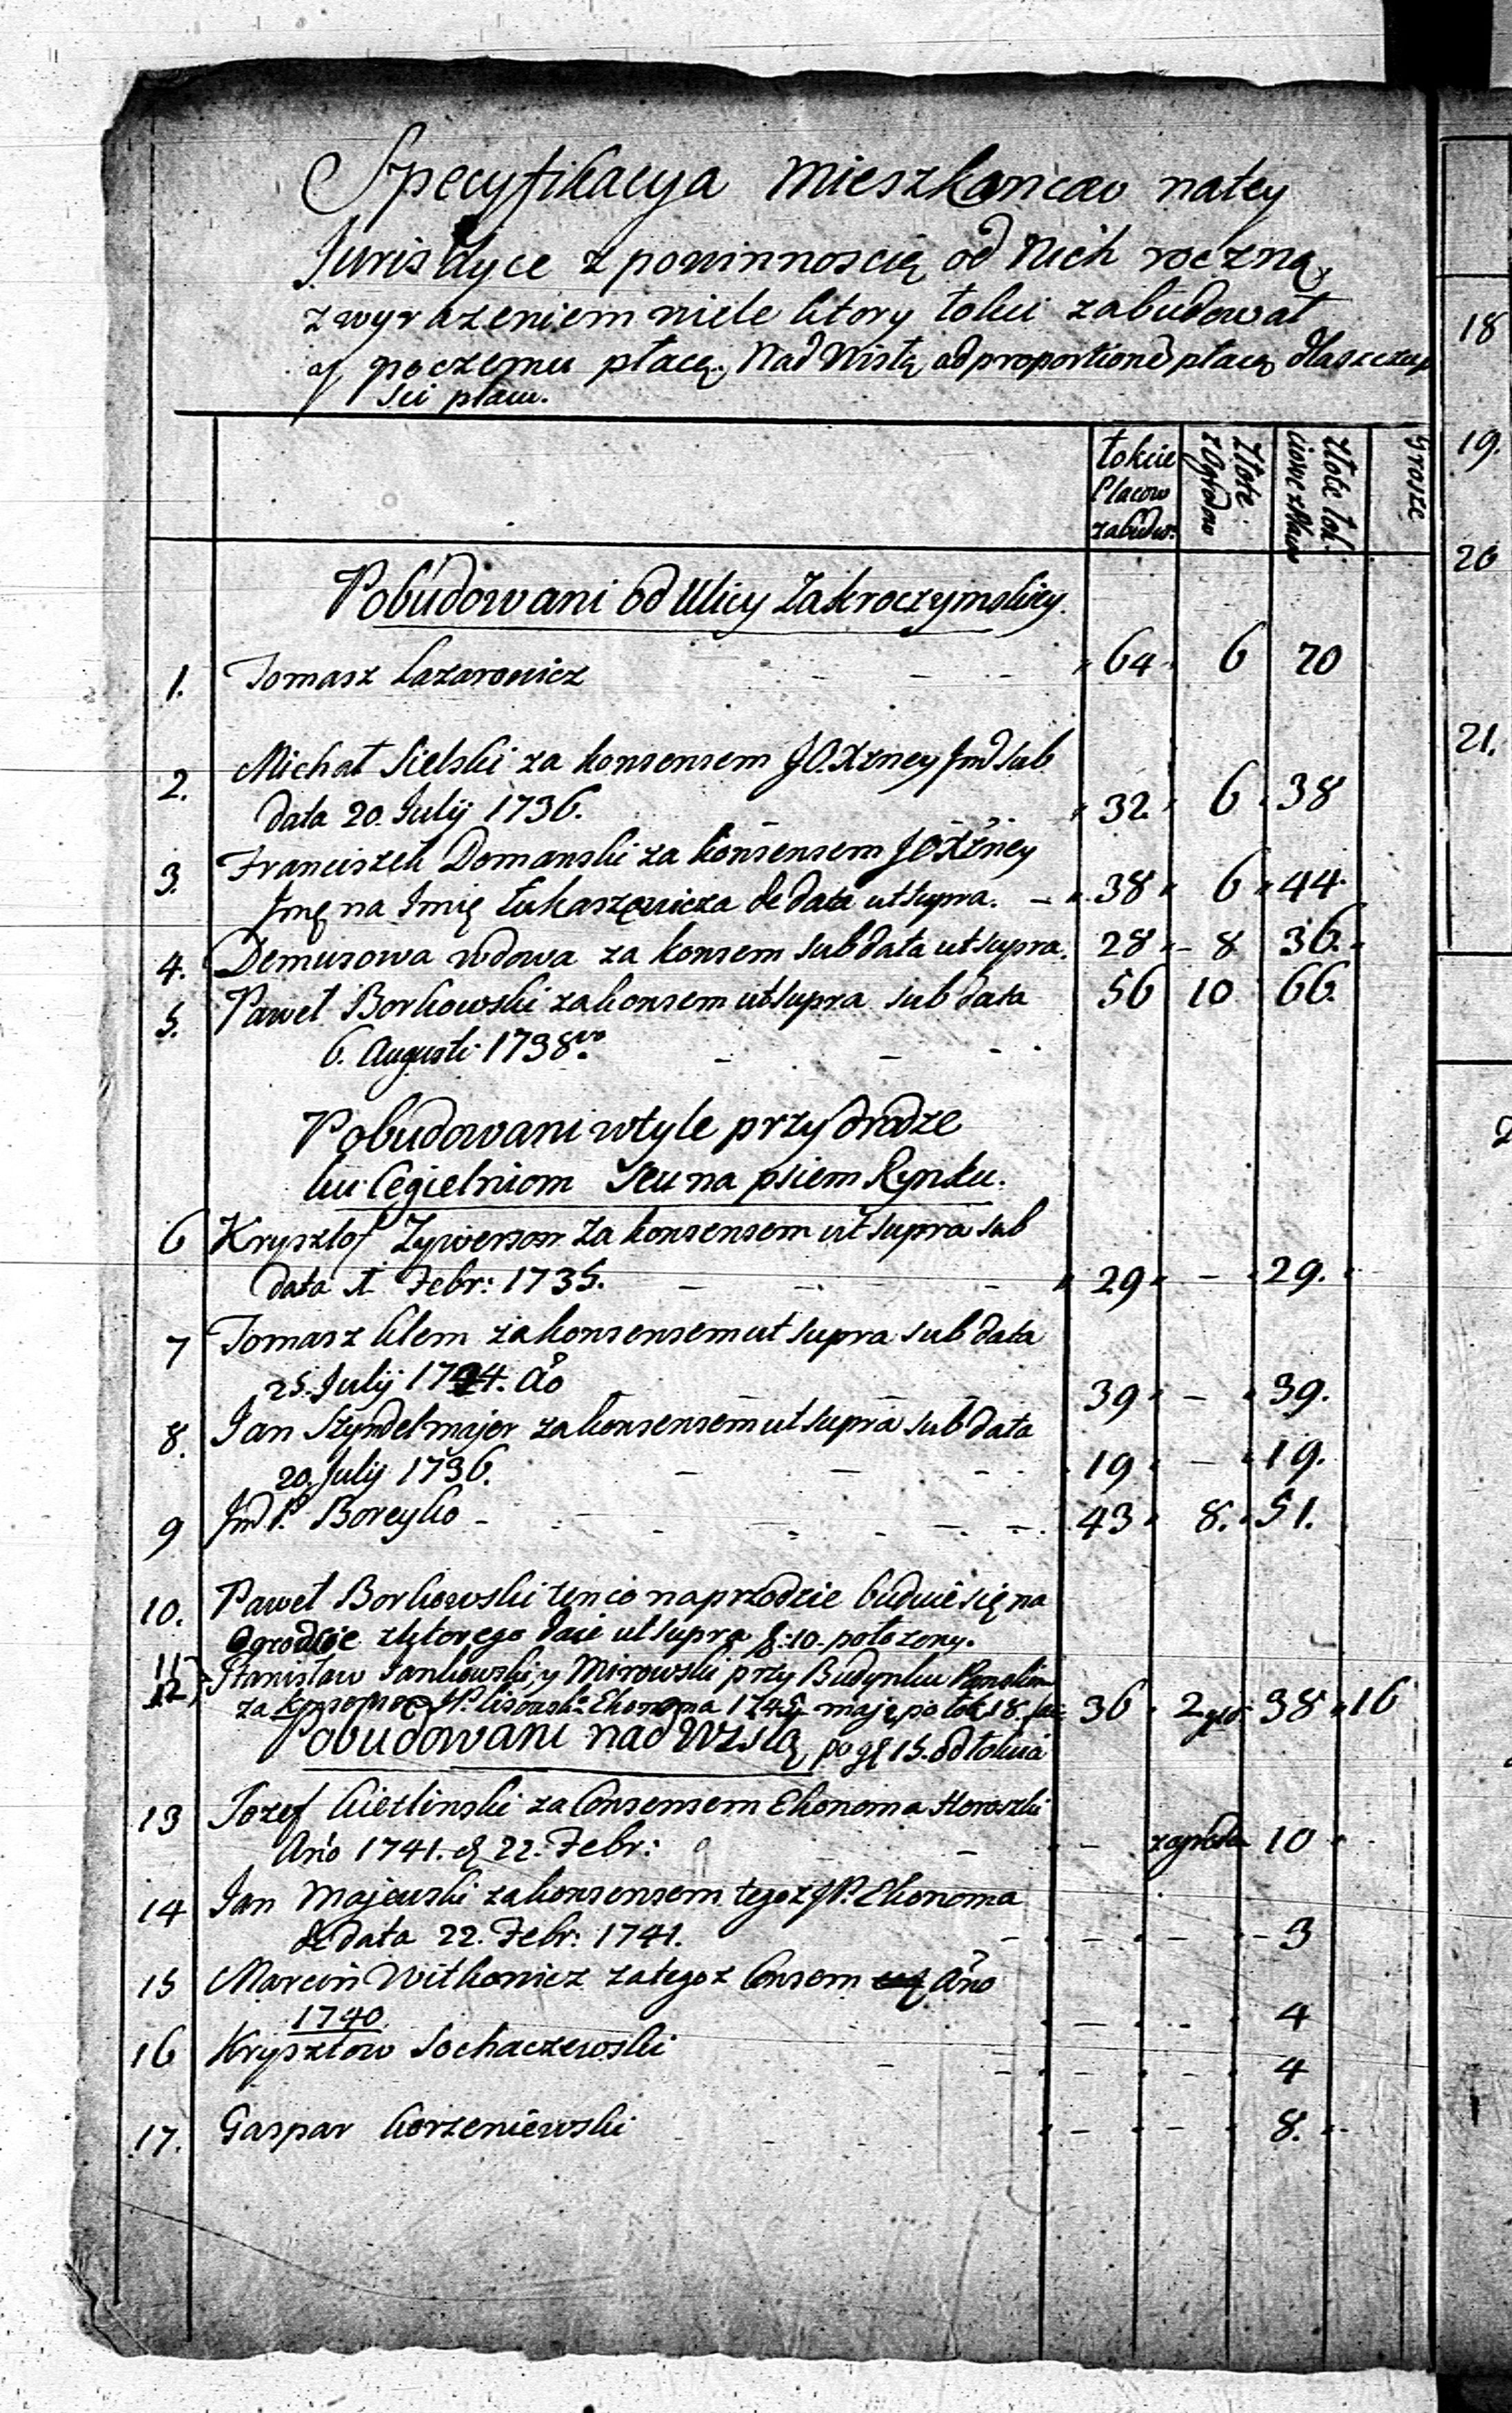 Specyfikacya Mieszkancow natey
Jurisdyce z powinnoscią od Nich roczną,
z wyrazeniem wiele ktory tokci zabudował
y poczemu płacą. Nad Wisłą ad proportione płacą dla szczupło
sci placu.
Łokcie Placow zabudow:
Złote z Ogrodow
Złote łok: ciowe z Placu
Grosze
Pobudowani od Ulicy Zakroczymskiey.
1. Tomasz Lazarowicz - - - 64 6 70
2. Michał Sielski za konsensem JO. Xżney Jmć sub
data 20. Julij 1736. 32. 6 38
3. Franciszek Domanski za konsensem JOXżney
Jmę na Imię Łukaszewicza de data ut supra. - 38 6 44
4. Demusowa wdowa za konsem sub data ut supra. 28 - 8 36.
5. Paweł Borkowski za konsem ut supra sub data 56 10 66.
6. Augusti 1738vo. - - -
Pobudowani w tyle przy drodze
ku Cegielniom seu na psiem Rynku.
6 Krysztof Zywerson za konsensem ut supra sub
data 1. Febr: 1735. - - - 29 - 29.
7 Tomasz Klem za konsensem ut supra sub data
25. Julij 1734. Ao 39 - 39.
8. Jan Szyndelmajer za konsensem ut supra sub data
20. Julij 1736. - - - 19 - 19.
9 Jmć P. Boreyko - - - 43 8. 51.
10. Paweł Borkowski ten co na przodzie buduie się na
Ogrodzie z ktorego daie ut supra f: 10. połozony.
11 12) Stanisław Jankowski, y Mirowski przy Budynku
za JP. Ekonoma mają po łok: 18. 36 2 38 16
Pobudowani nad Wisłą po gł 15. od łokcia
13 Jozef Kietlinski za Consensem Ekonoma Horoszki
Ano 1741. d 22. Febr: - - 10
14 Jan Majewski za konsensem tegoz JP. Ekonoma
de data 22. Febr: 1741. - - - 3
15 Marcin Witkowicz za tegoz Consem Ano
1740. - - 4
16 Krysztow Sochaczewski - - - 4
17. Gaspar Korzeniewski - - 8.
18
19.
20
21.